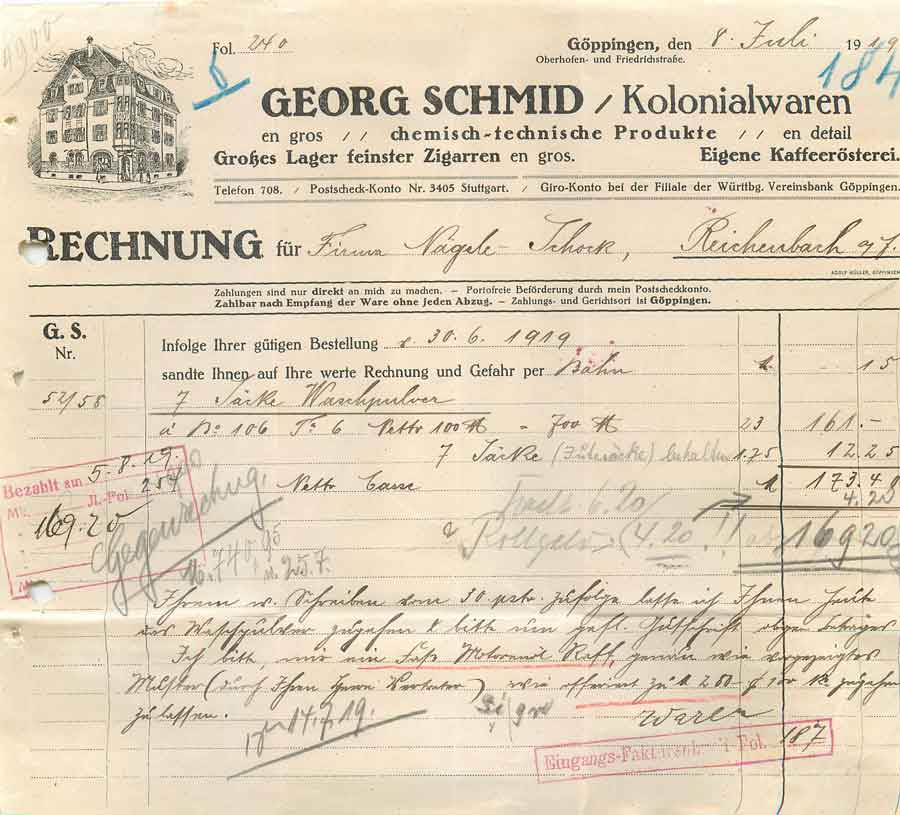 4900
Fol. 240
Göppingen, den 8. Juli 1919
Oberhofen- und Friedrichstraße.
6
184
GEORG SCHMID / Kolonialwaren
en gros // chemisch-technische Produkte // en detail
Großes Lager feinster Zigarren en gros. Eigene Kaffeerösterei.
Telefon 708. / Postscheck-Konto Nr. 3405 Stuttgart. / Giro-Konto bei der Filiale der Württbg. Vereinsbank Göppingen.
RECHNUNG für Firma Nägele-Schock, Reichenbach a/F.
ADOLF MÜLLER, GÖPPINGEN
Zahlungen sind nur direkt an mich zu machen. — Portofreie Beförderung durch mein Postscheckkonto.
Zahlbar nach Empfang der Ware ohne jeden Abzug. — Zahlungs- und Gerichtsort ist Göppingen.
G. S.
Nr.
Infolge Ihrer gütigen Bestellung v. 30.6.1919
sandte Ihnen auf Ihre werte Rechnung und Gefahr per Bahn 15
52/58 7 Säcke Waschpulver
à No 106 6 Netto 100 = 700 23 161.-
7 Säcke (Jutesäcke) behalten 1.75 12.25
Netto Cassa 173.40
4.20
Fracht 6.20
(4.20!! 16920
Bezahlt am 5.8.19.
Jl.-Fol. 254
169.20
Gegenrechnung.
M. 740.95
v. 25.7.
Ihrem w. Schreiben vom 30 pstr. zufolge lasse ich Ihnen heute
das Waschpulver zugehen & bitte um gefl. Gutschrift obigen Betrages
Ich bitte, mir ein Faß Motorenöl Raff, genau wie vorgezeigtes
Muster (durch Ihren Herrn Vertreter) wie offeriert zu 280 zugehen
zu lassen.
14.7.19.
Waren
Eingangs-Fakturenb. Fol. 187